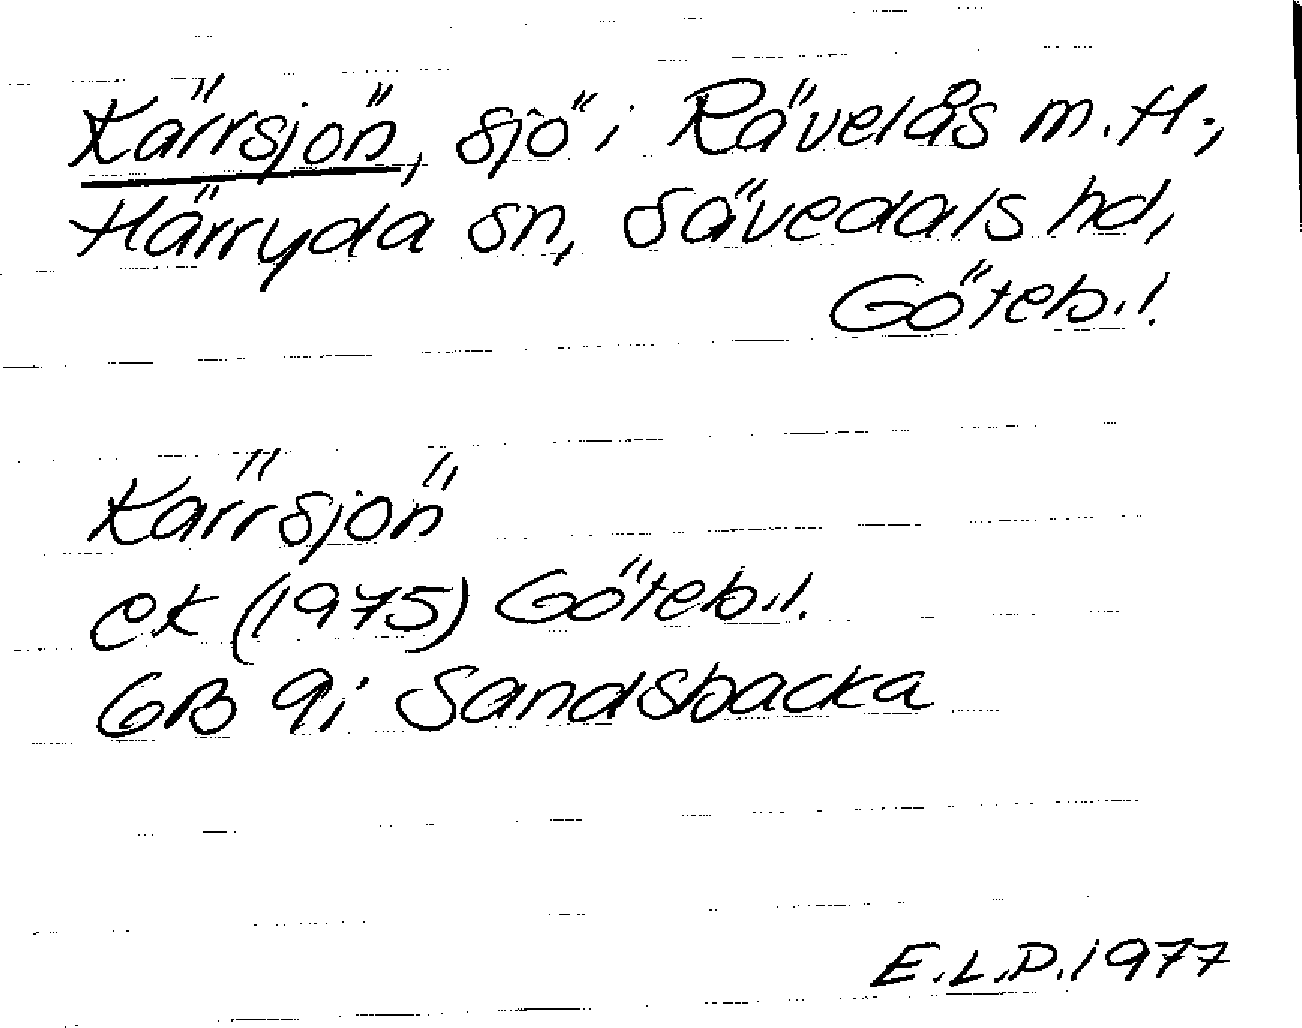 Kärrsjön, sjö i Rävelås m. fl.,
Härryda sn, Sävedals hd,
Göteb. l.
Kärrsjön
ek (1975) Göteb. l.
6B 9i Sandsbacka
E.L.P. 1977